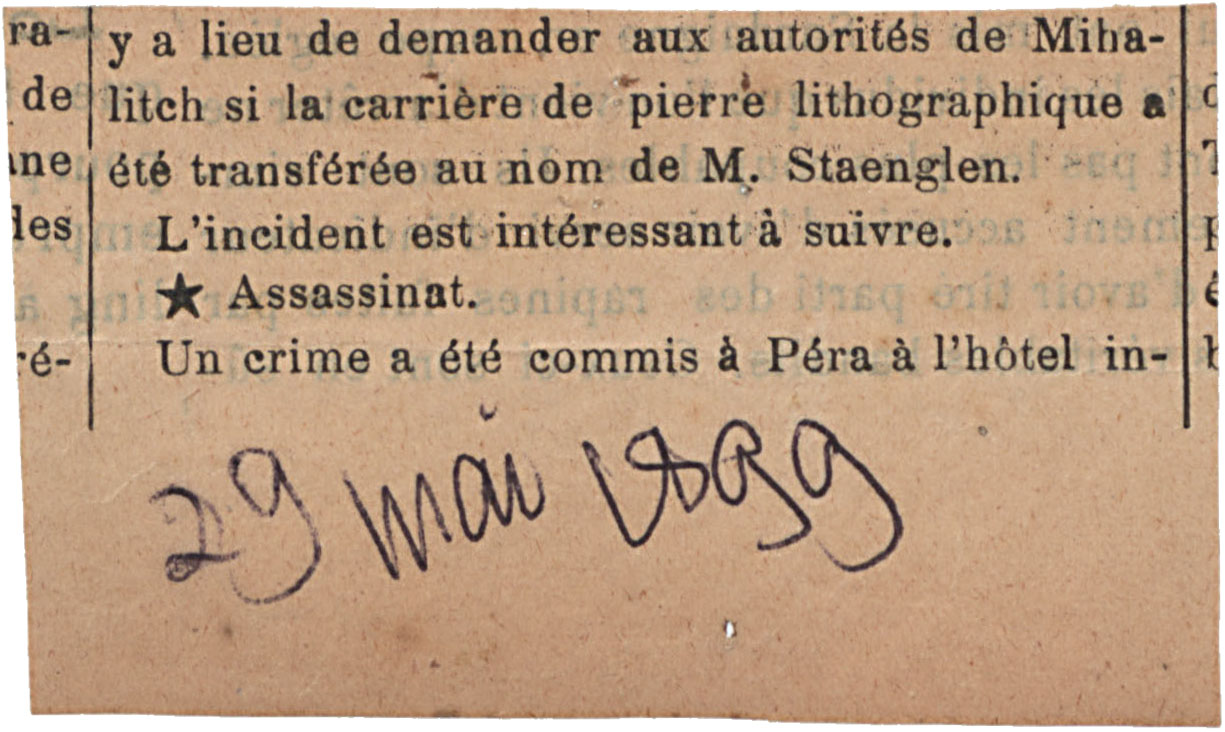 ra-
de
ne
des
ré-
y a lieu de demander aux autorités de Miha-
litch si la carrière de pierre lithographique a
été transférée au nom de M. Staenglen.
L'incident est intéressant à suivre.
★ Assassinat.
Un crime a été commis à Péra à l'hôtel in-
29 mai 1899